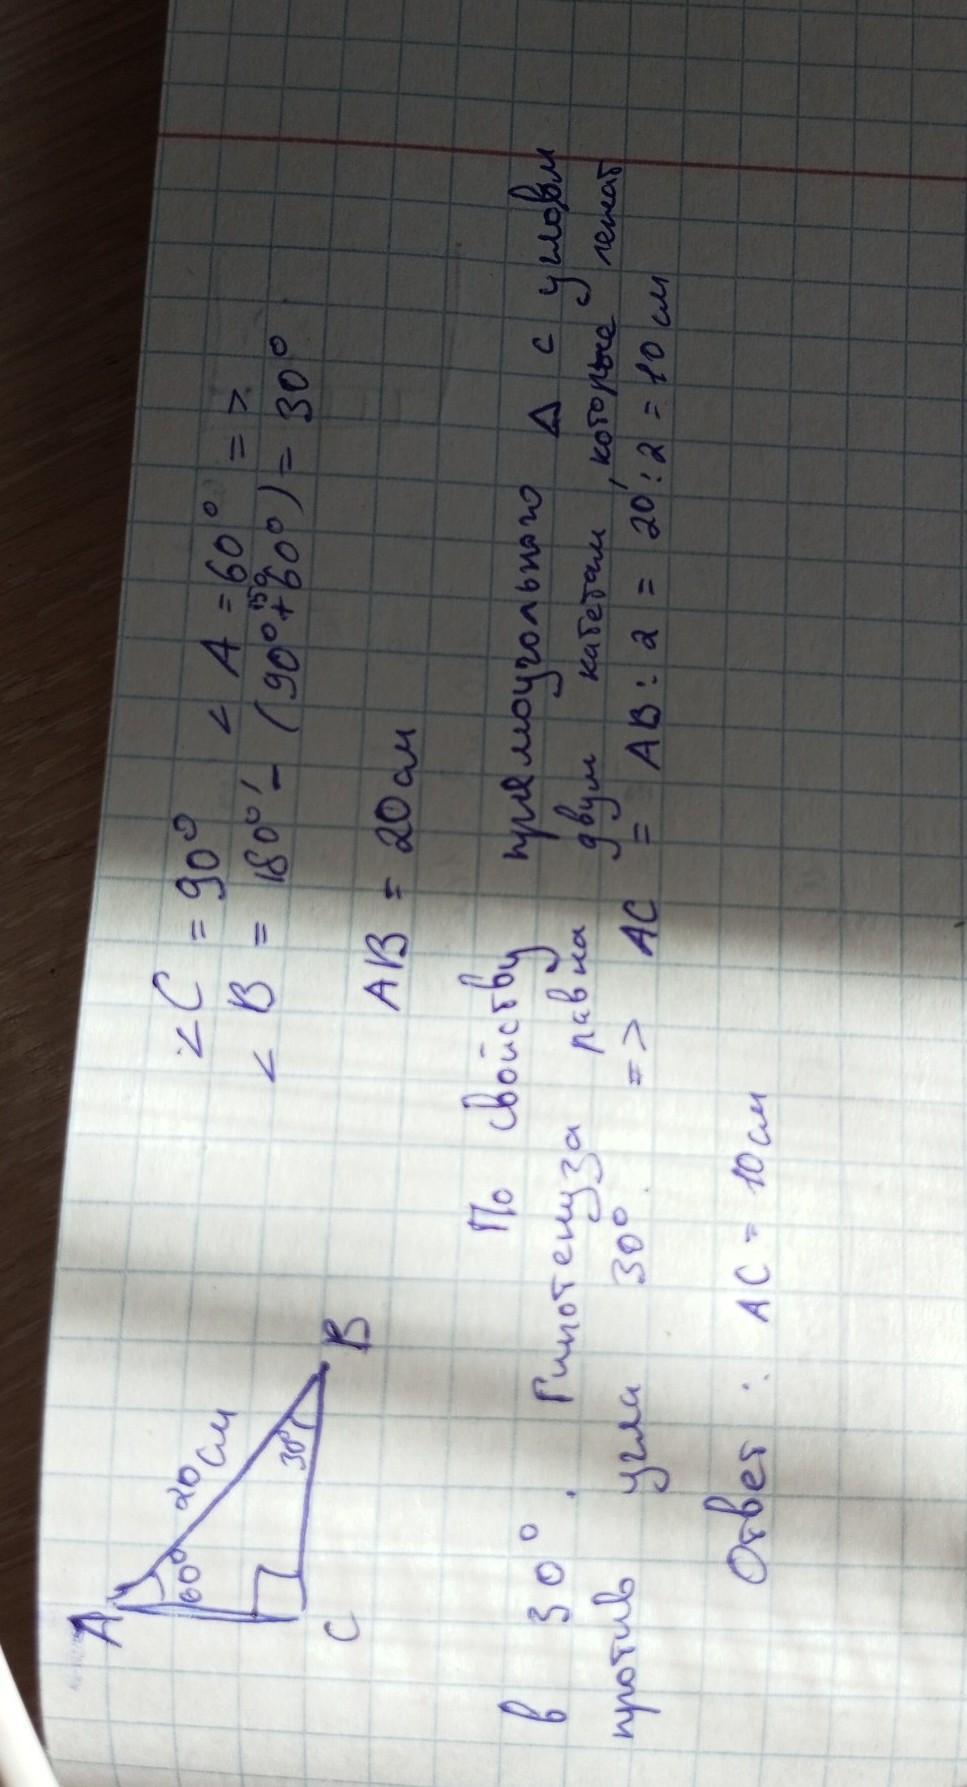 A
20 см
60°
30°
C
B
∠C = 90° ∠A = 60° =>
∠B = 180° - (90° + 60°) = 30°
150
AB = 20см
По свойству прямоугольного Δ с углом
в 30°. Гипотенуза равна двум катетам, которые лежат
против угла 30° => AC = AB : 2 = 20 : 2 = 10 см
Ответ: AC = 10см